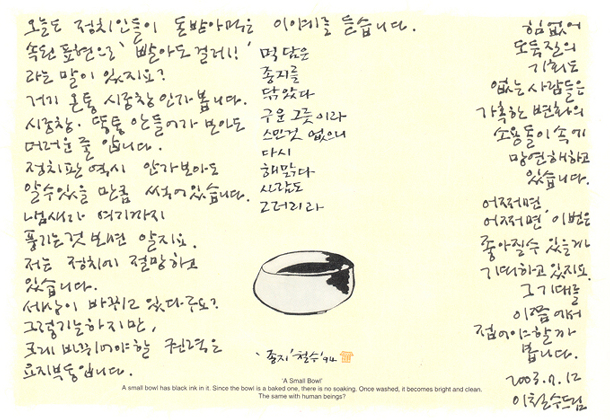 오늘도 정치인들이 돈받아먹은 이야기를 듣습니다.
속된 표현으로 '빨아도 걸레!'
라는 말이 있지요?
거기 온통 시궁창인가 봅니다.
시궁창. 똥통 안들어가 보아도
더러운 줄 압니다.
정치판 역시 안가보아도
알수있을 만큼 썩어있습니다.
냄새가 여기까지
풍기는것 보면 알지요.
저는 정치에 절망하고
있습니다.
세상이 바뀌고 있다구요?
그렇기는하지만,
크게 바뀌어야할 권력은
요지부동입니다.
먹 담은
종지를
닦았다
구운 그릇이라
스민것 없으니
다시
해맑다
사람도
그러리라
'종지' 철수 '94
'A Small Bowl'
A small bowl has black ink in it. Since the bowl is a baked one, there is no soaking. Once washed, it becomes bright and clean.
The same with human beings?
힘없어
도둑질의
기회도
없는 사람들은
가혹한 변화의
소용돌이 속에
망연해하고
있습니다.
어쩌면
어쩌면 이번은
좋아질수 있을까
기대하고 있지요.
그 기대를
이쯤에서
접어야할까
봅니다.
2003.7.12
이철수드림